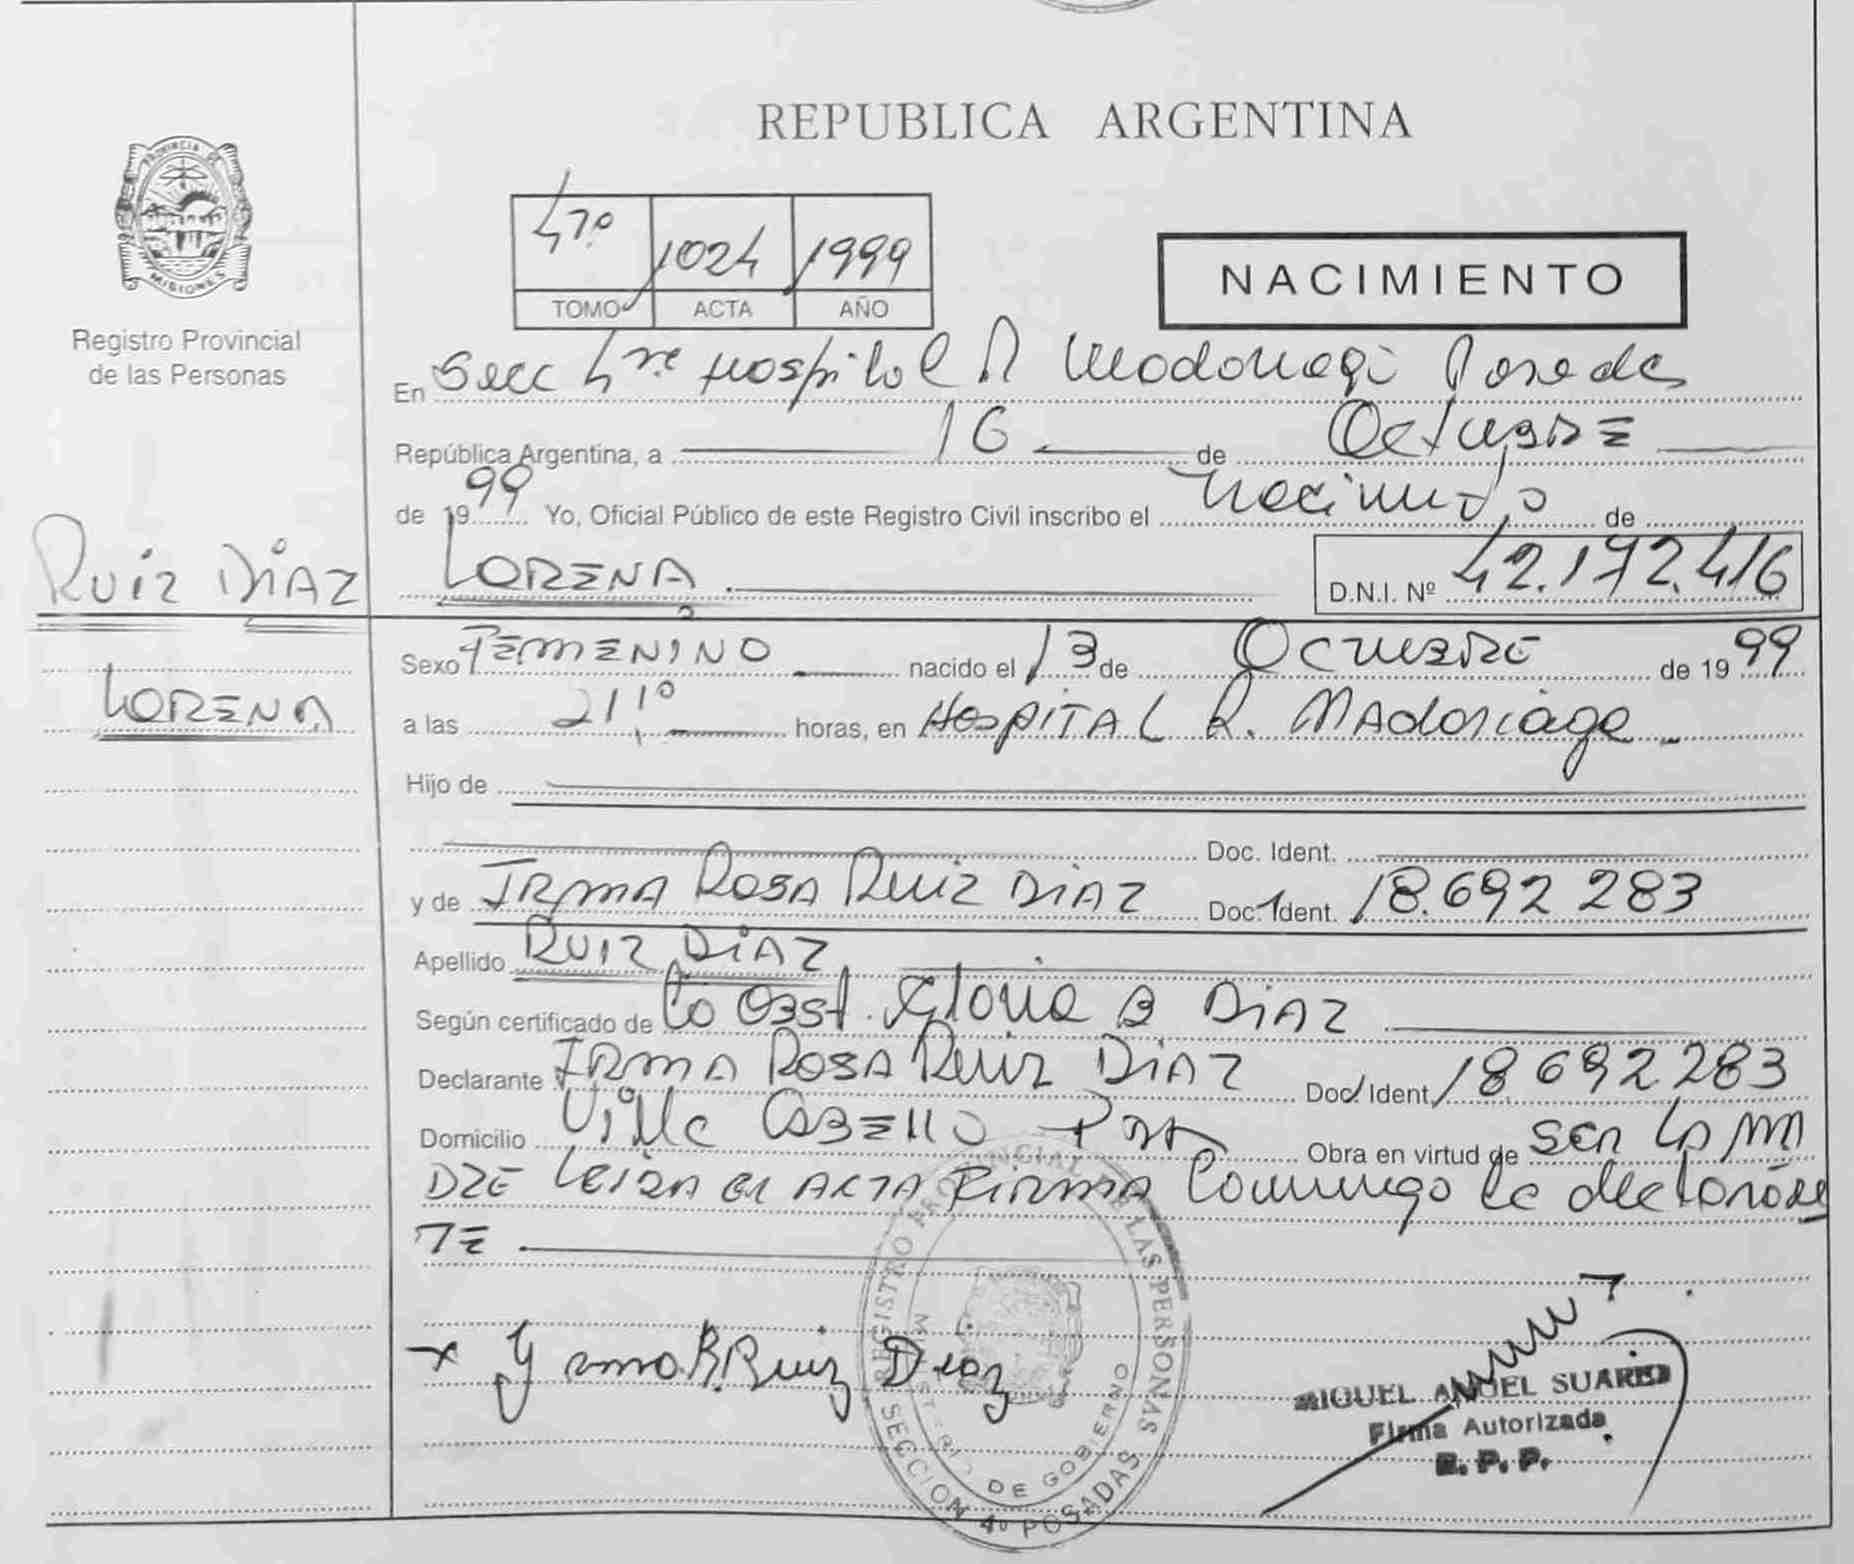 REPUBLICA ARGENTINA
PROVINCIA DE
MISIONES
Registro Provincial
de las Personas
4º 1024 1999
TOMO ACTA AÑO
NACIMIENTO
En Secc 4ta Hospital R Madariaga Posadas
República Argentina, a 16 de Octubre
de 1999 Yo, Oficial Público de este Registro Civil inscribo el nacimiento de
RUIZ DIAZ
LORENA
D.N.I. Nº 42.172.416
LORENA
Sexo FEMENINO nacido el 13 de Octubre de 1999
a las 21,10 horas, en Hospital R. Madariaga
Hijo de
Doc. Ident.
y de IRMA ROSA RUIZ DIAZ Doc. Ident. 18.692 283
Apellido RUIZ DIAZ
Según certificado de la Obst. Gloria B DIAZ
Declarante IRMA ROSA RUIZ DIAZ Doc Ident 18 692 283
Domicilio Villa Cabello Obra en virtud de ser la MA
DRE LEIDA EL ACTA FIRMA Conmigo la declaran
TE
x Irma R. Ruiz Diaz
REGISTRO PROVINCIAL DE LAS PERSONAS
MINISTERIO DE GOBIERNO
SECCION 4º POSADAS
MIGUEL ANGEL SUAREZ
Firma Autorizada
R. P. P.